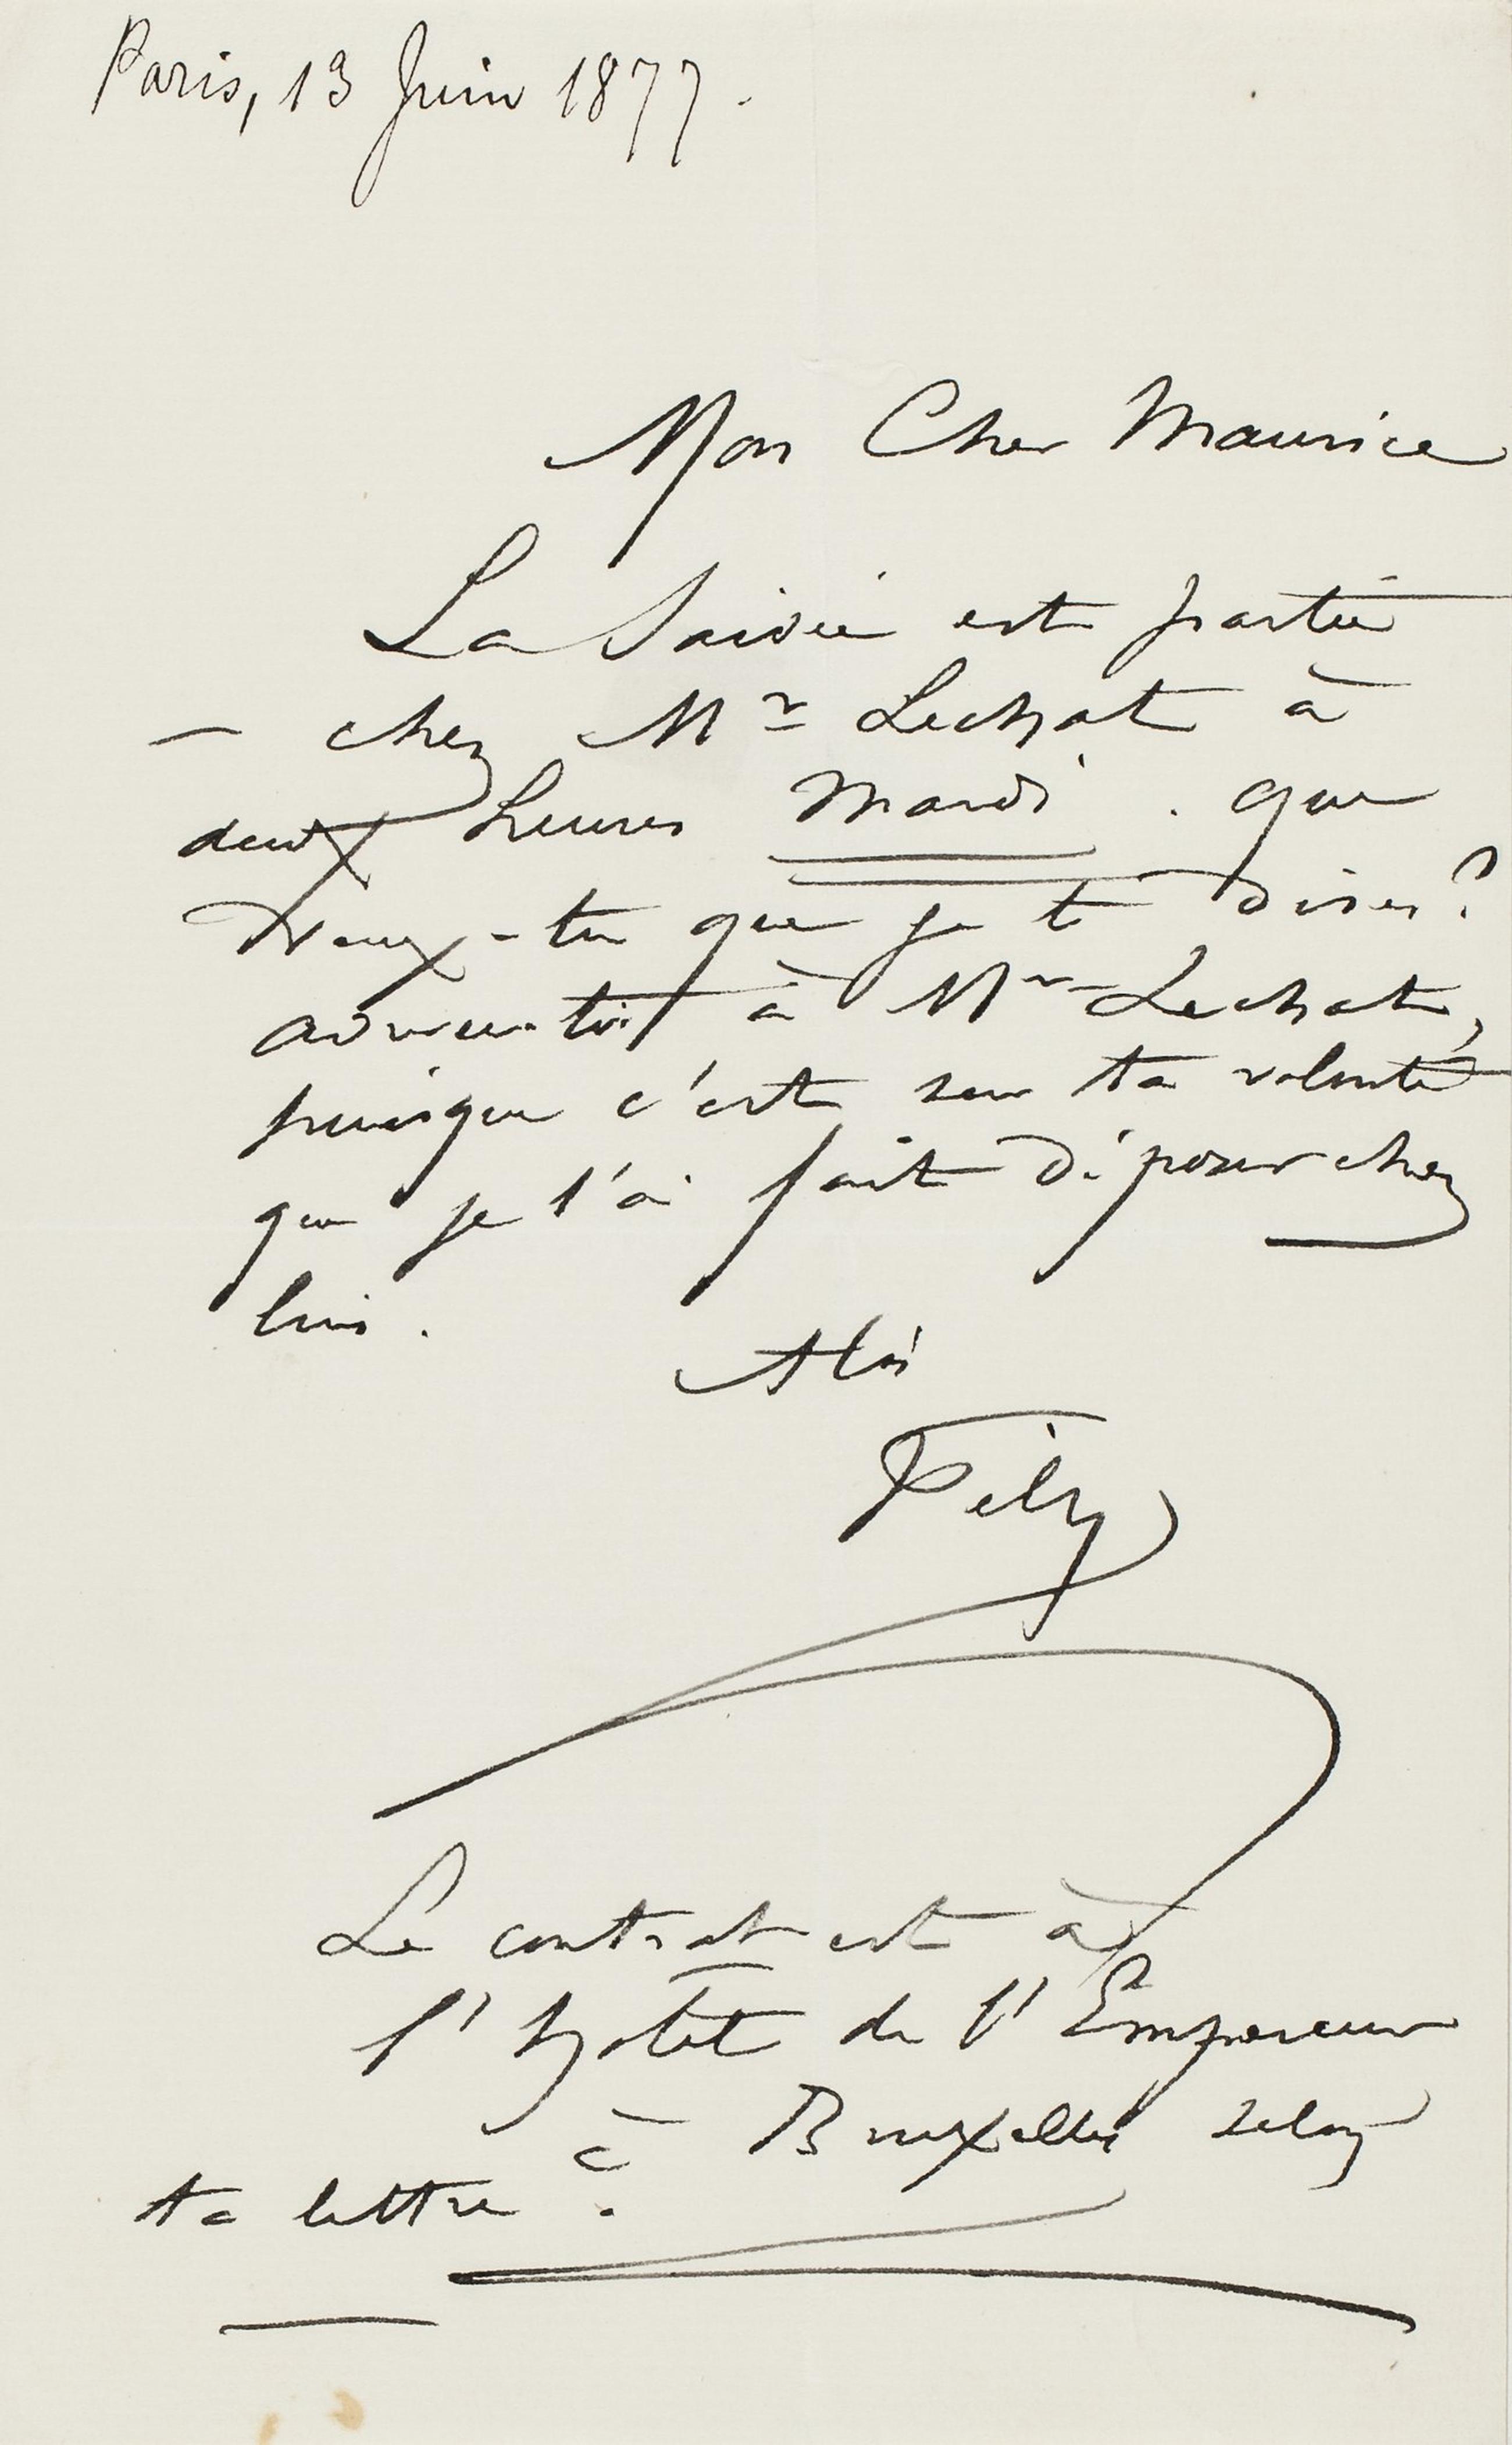 Paris, 13 Juin 1877.
Mon Cher Maurice
La est partie
— chez Mr Lechat à
deux heures mardi. que
veux-tu que je te dises?
adresse-toi à Mr Lechat,
puisque c'est sur ta volonté
que je l'ai fait déposer chez
lui.
A toi
Fély
Le contrat est à
l'hôtel de l'Empereur
à Bruxelles selon
ta lettre.